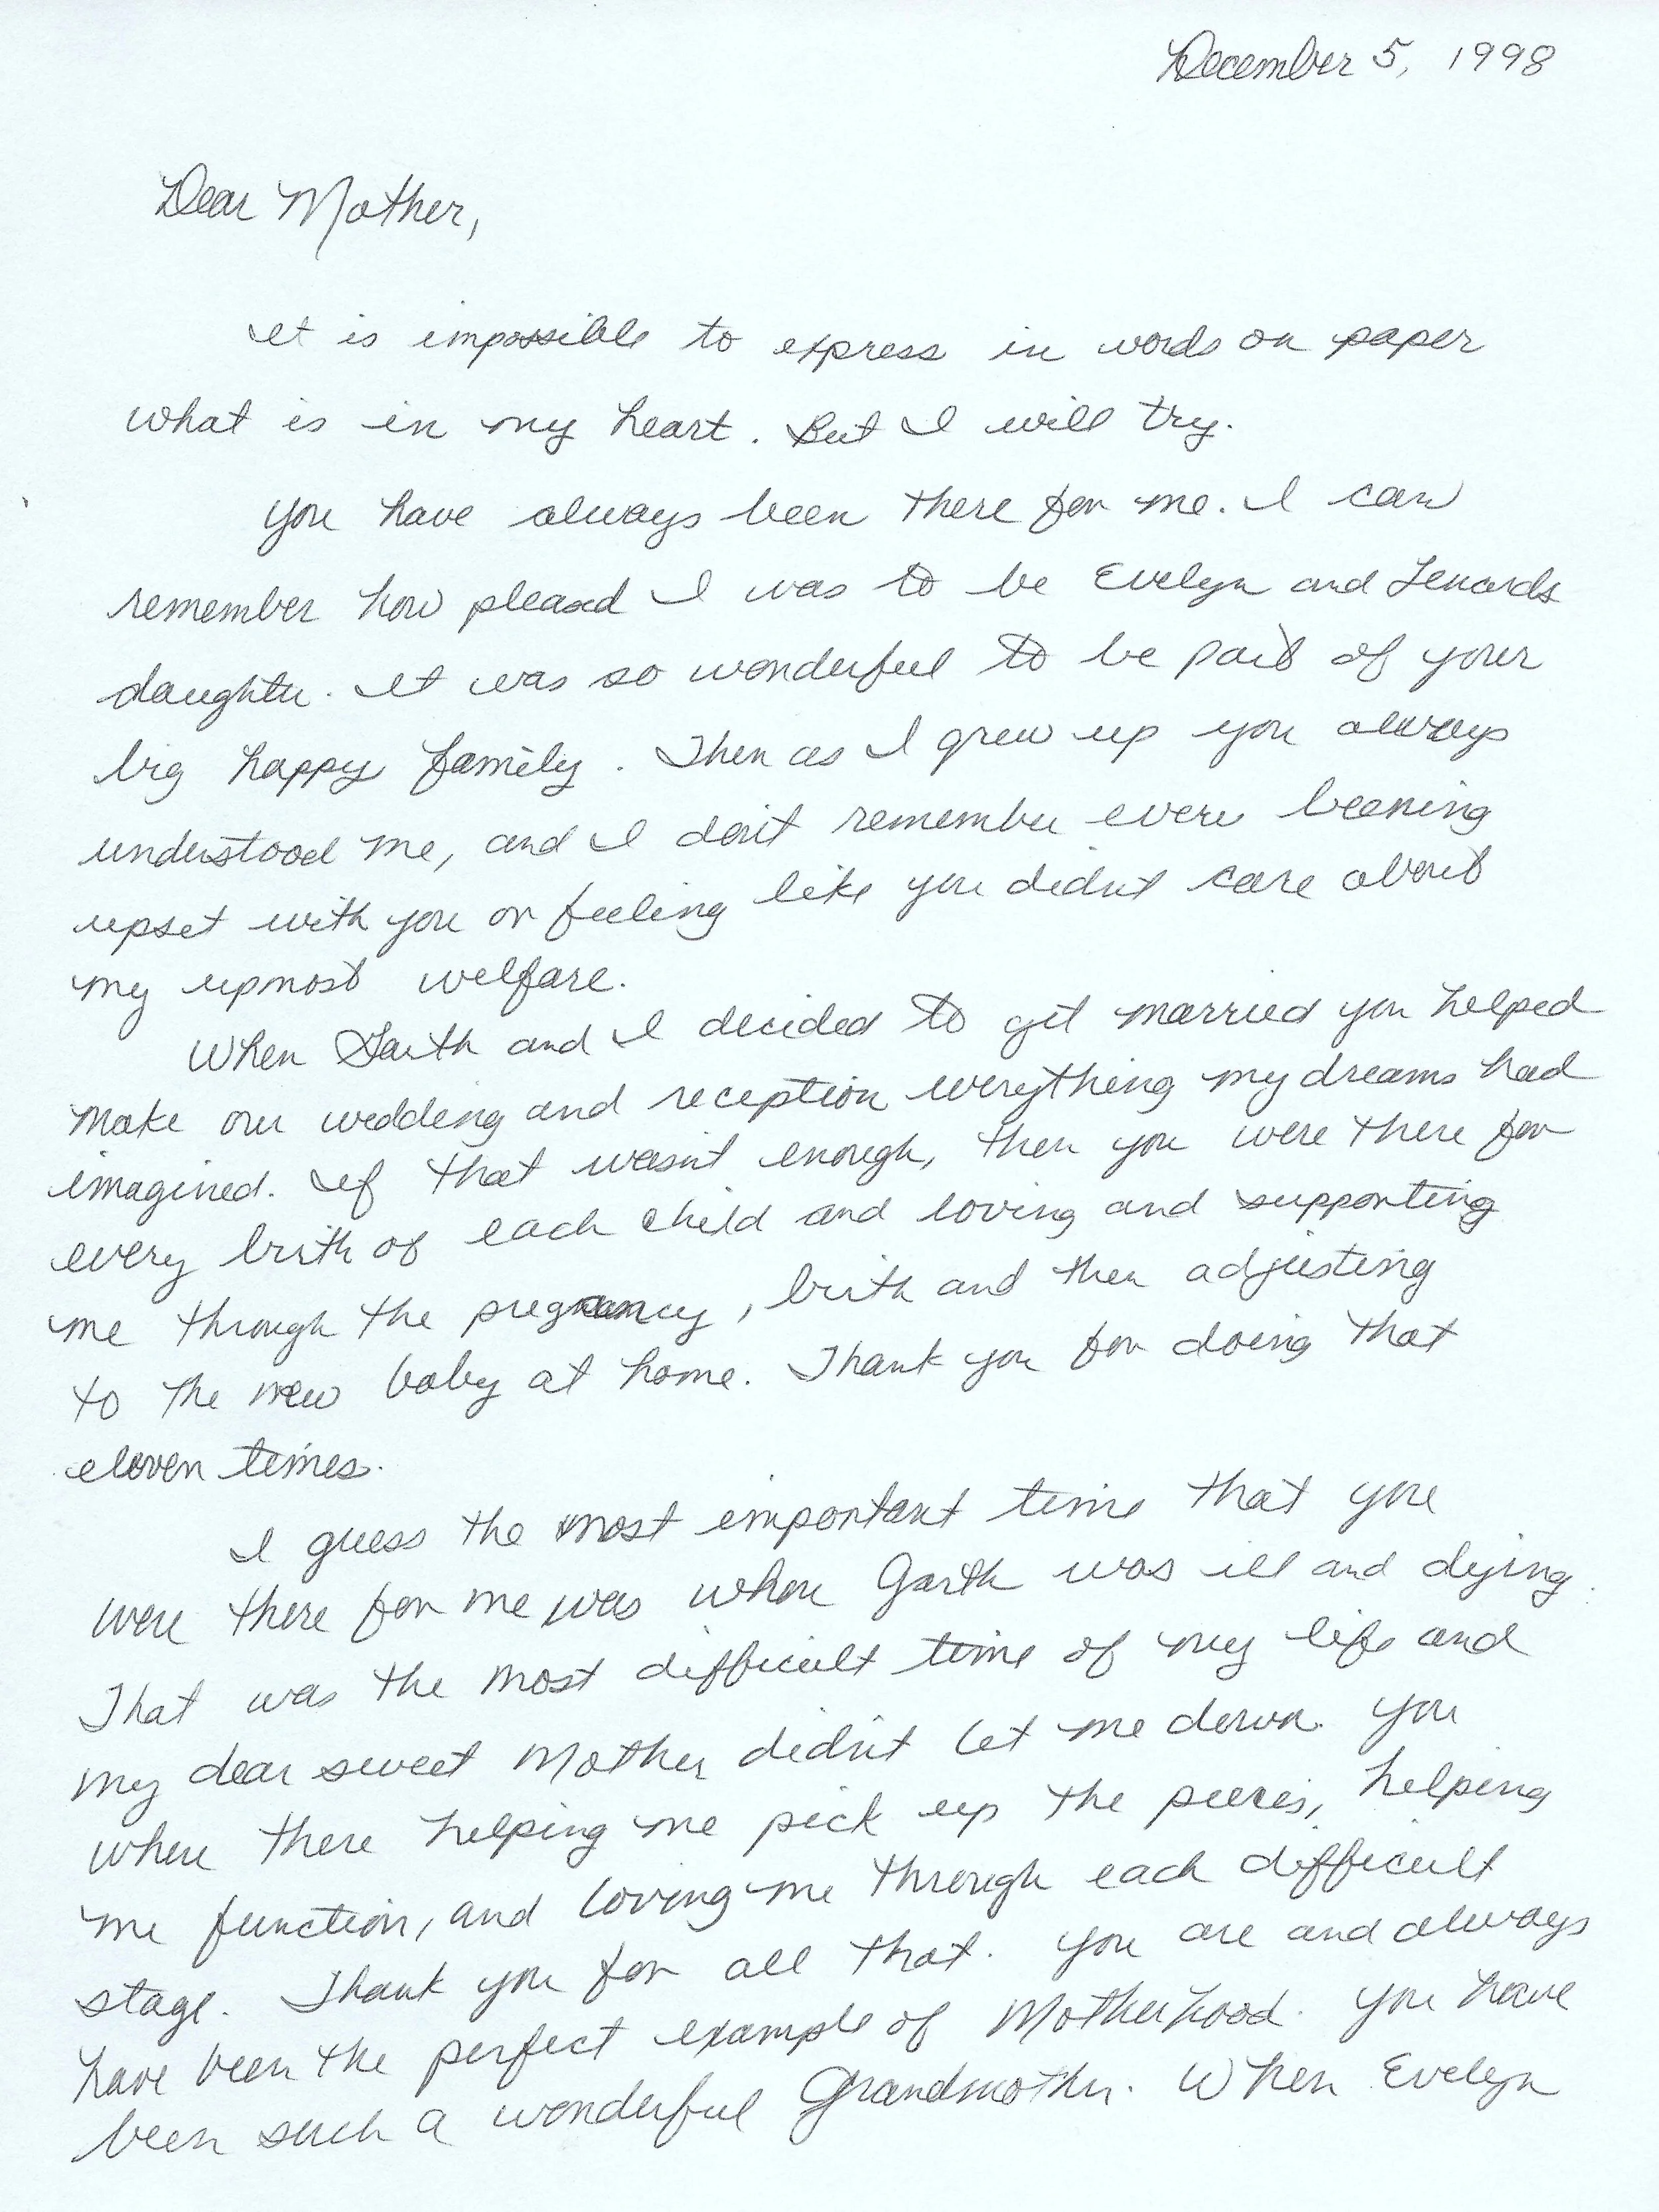 December 5, 1998
Dear Mother,
It is impossible to express in words on paper
what is in my heart. But I will try.
You have always been there for me. I can
remember how pleased I was to be Evelyn and Lenards
daughter. It was so wonderful to be part of your
big happy family. Then as I grew up you always
understood me, and I don't remember ever
upset with you or feeling like you didn't care about
my upmost welfare.
When Garth and I decided to get married you helped
make our wedding and reception everything my dreams had
imagined. If that wasn't enough, then you were there for
every brith of each child and loving and supporting
me through the pregnancy, brith and then adjusting
to the new baby at home. Thank you for doing that
eleven times.
I guess the most important time that you
were there for me was when Garth was ill and dying.
That was the most difficult time of my life and
my dear sweet Mother didn't let me down. You
where there helping me pick up the pieces, helping
me function, and loving me through each difficult
stage. Thank you for all that. You are and always
have been the perfect example of Motherhood. You have
been such a wonderful Grandmother. When Evelyn